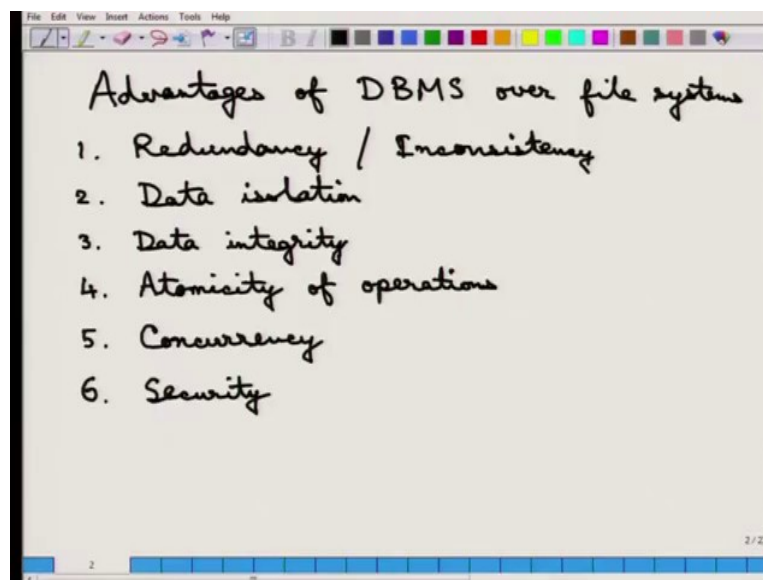 File Edit View Insert Actions Tools Help
B I
Advantages of DBMS over file systems
1. Redundancy / Inconsistency
2. Data isolation
3. Data integrity
4. Atomicity of operations
5. Concurrency
6. Security
2/2
2